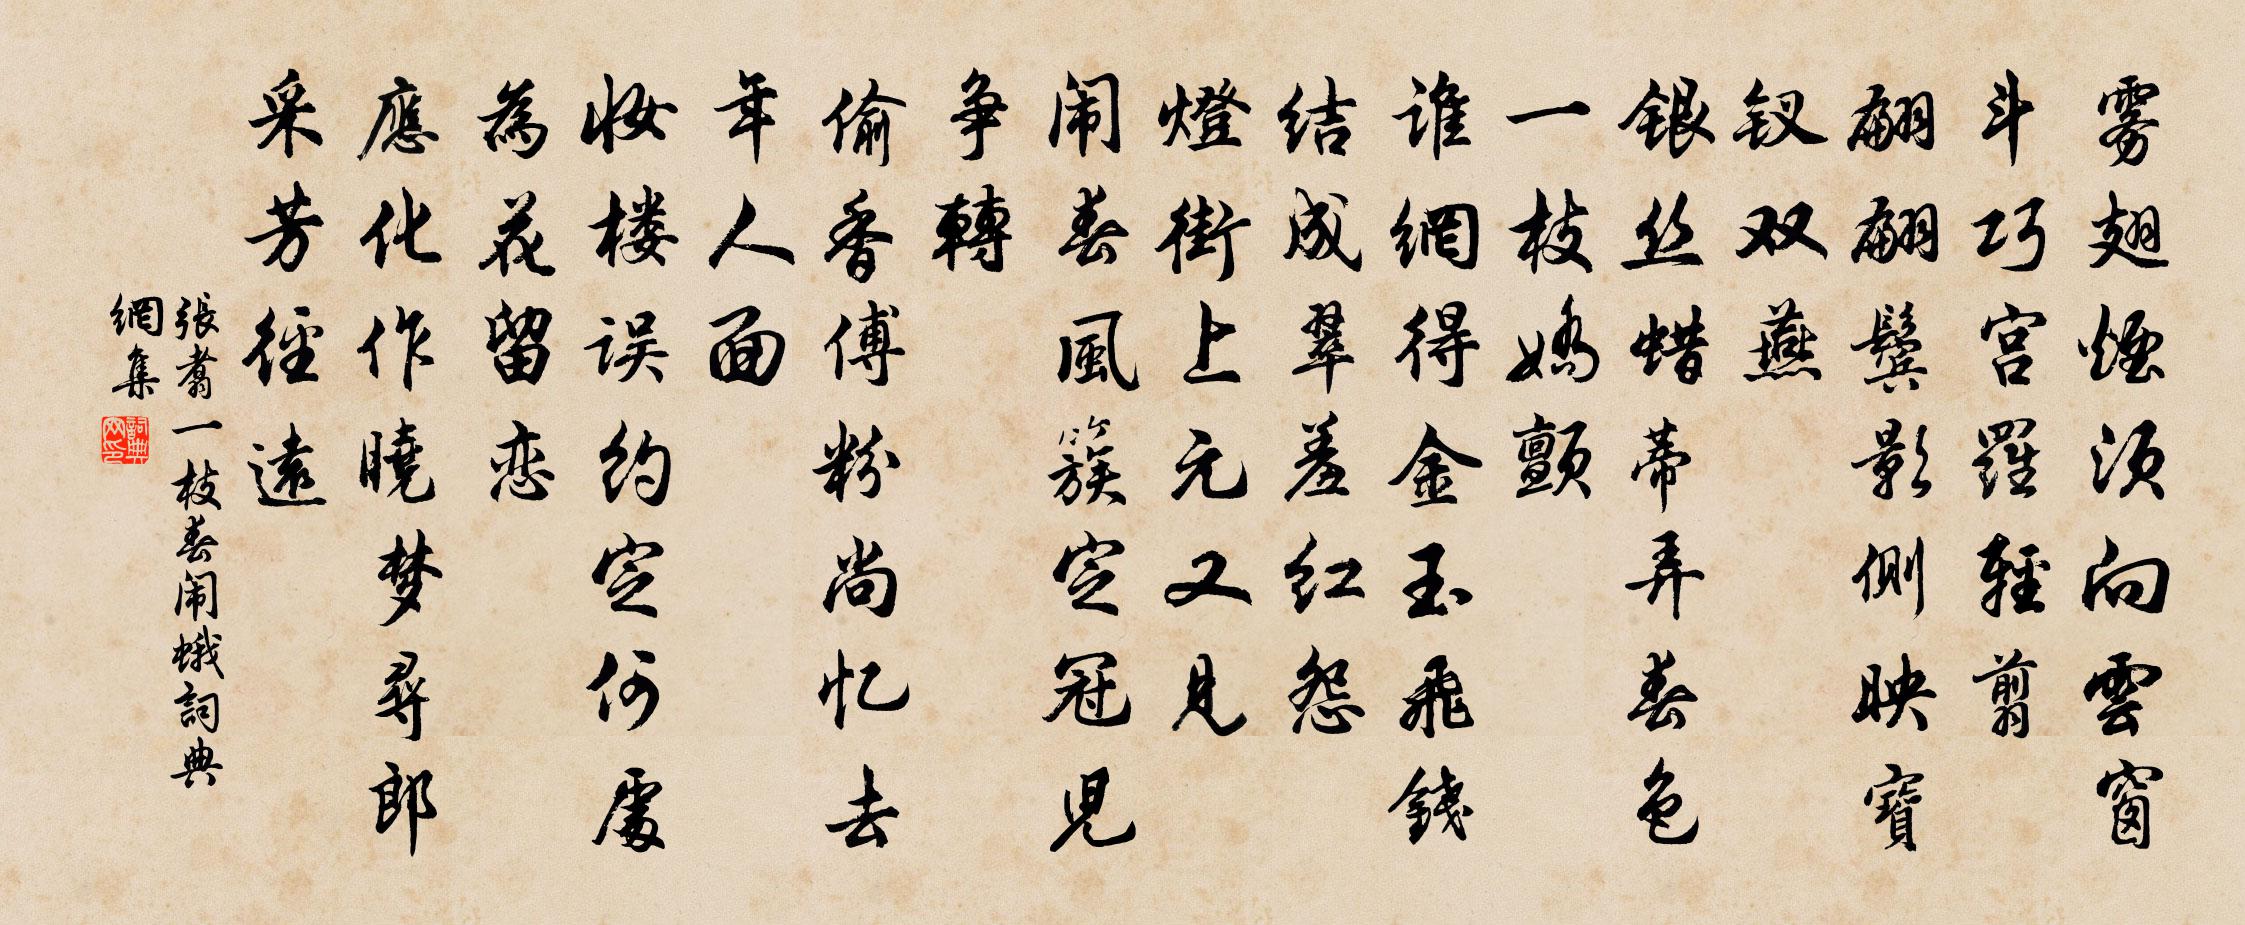 雾翅煙须向雲窗
斗巧宫羅輕剪
翩翩鬓影側映寶
钗双燕
银丝蜡蒂弄春色
一枝嬌颤
谁網得金玉飛錢
结成翠羞红怨
燈街上元又見
闹春風簇定冠児
争轉
偷香傅粉尚忆去
年人面
妆楼误约定何處
為花留恋
應化作曉梦尋郎
采芳徑遠
張翥一枝春闹蛾詞典
網集
詞典
网印